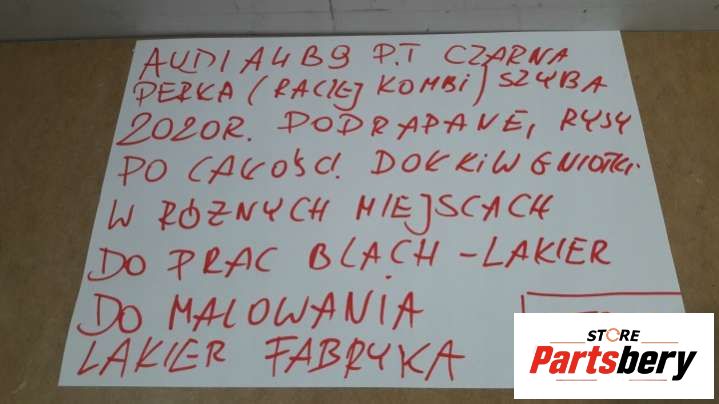 AUDI A4 B9 P.T CZARNA
PERKA (RACZEJ KOMBI) SZYBA
2020R. PODRAPANE, RYSY
PO CAŁOŚCI. DOŁKI WGNIOTKI
W RÓŻNYCH MIEJSCACH
DO PRAC BLACH - LAKIER
DO MALOWANIA
LAKIER FABRYKA
STORE
Partsbery